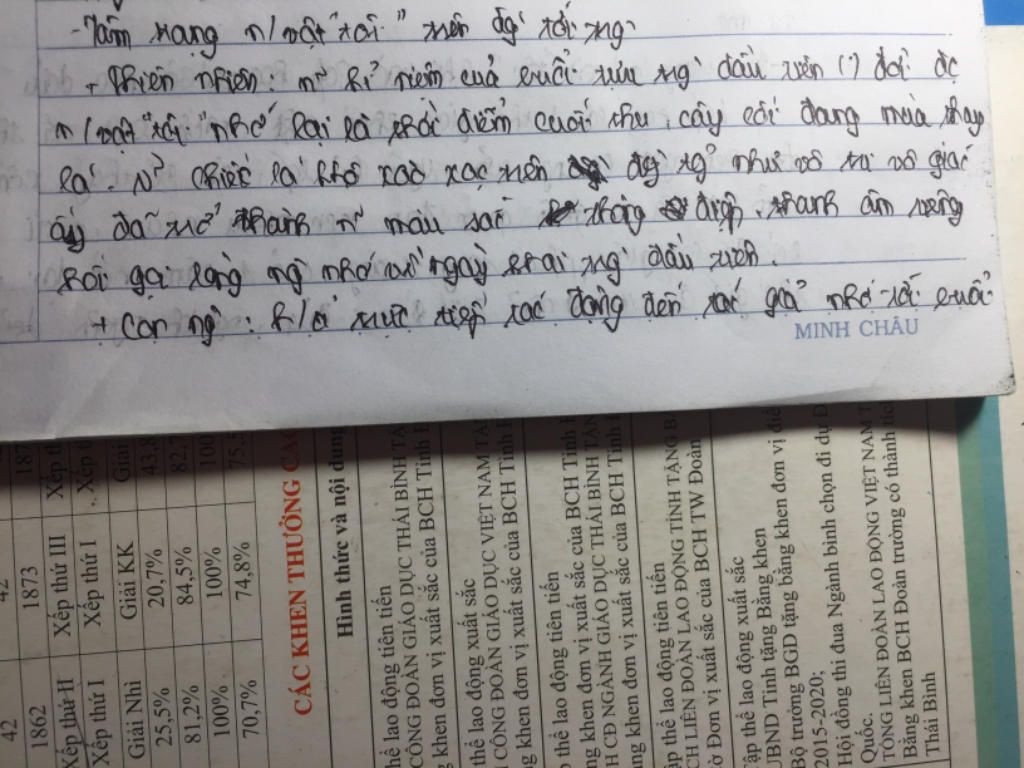 - Tâm trạng n/vật "tôi" trên đg' tới trg'
+ Thiên nhiên: n~ kỉ niệm của buổi tựu trg' đầu tiên () đời đc
n/vật "tôi" nhớ lại là thời điểm cuối thu, cây cối đang mùa thay
lá. N~ chiếc lá khô xào xạc trên đg' tg~ như vô tri vô giác
ấy đã trở thành n~ màu sắc thông điệp, thanh âm
gợi lòng ng' nhớ về ngày khai trg' đầu tiên.
+ Con ng' : k/o trực tiếp tác động đến tác giả nhớ tới buổi
MINH CHÂU
42
1873
Xếp thứ III
Xếp thứ I
Giải KK
20,7%
84,5%
100%
74,8%
42
1862
Xếp thứ II
Xếp thứ I
Giải Nhì
25,5%
81,2%
100%
70,7%
CÁC KHEN THƯỞNG
Hình thức và nội dung
thể lao động tiên tiến
CÔNG ĐOÀN GIÁO DỤC THÁI BÌNH
g khen đơn vị xuất sắc của BCH Tỉnh
thể lao động xuất sắc
CÔNG ĐOÀN GIÁO DỤC VIỆT NAM
g khen đơn vị xuất sắc của BCH Tỉnh
thể lao động tiên tiến
CĐ NGÀNH GIÁO DỤC THÁI BÌNH
khen đơn vị xuất sắc của BCH Tỉnh
ập thể lao động tiên tiến
CH LIÊN ĐOÀN LAO ĐỘNG TỈNH TẶNG
Đơn vị xuất sắc của BCH TW Đoàn
Tập thể lao động xuất sắc
UBND Tỉnh tặng Bằng khen
Bộ trưởng BGD tặng bằng khen đơn vị
2015-2020;
Hội đồng thi đua Ngành bình chọn đi dự
Quốc.
TỔNG LIÊN ĐOÀN LAO ĐỘNG VIỆT NAM
Bằng khen BCH Đoàn trường có thành tích
Thái Bình